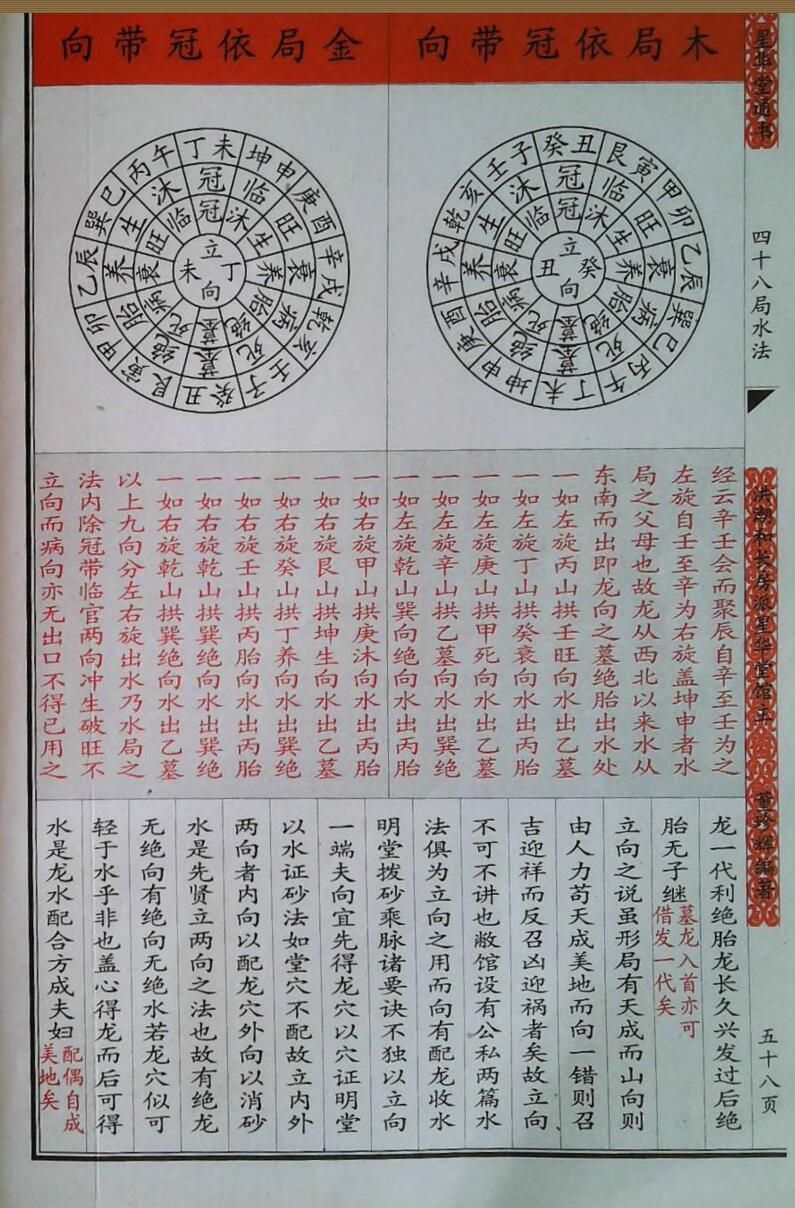 星华堂通书
四十八局水法
洪潮和长房派星华堂馆主
董珍辉编著
五十八页
木局依冠带向
癸丑 艮寅 甲卯 乙辰 巽巳 丙午 丁未 坤申 庚酉 辛戌 乾亥 壬子
冠 临 旺 衰 病 死 墓 绝 胎 养 生 沐
冠 沐 生 养 胎 绝 墓 死 病 衰 旺 临
立癸丑向
金局依冠带向
丁未 坤申 庚酉 辛戌 乾亥 壬子 癸丑 艮寅 甲卯 乙辰 巽巳 丙午
冠 临 旺 衰 病 死 墓 绝 胎 养 生 沐
冠 沐 生 养 胎 绝 墓 死 病 衰 旺 临
立丁未向
经云辛壬会而聚辰自辛至壬为之
左旋自壬至辛为右旋盖坤申者水
局之父母也故龙从西北以来水从
东南而出即龙向之墓绝胎出水处
一如左旋丙山拱壬旺向水出乙墓
一如左旋丁山拱癸衰向水出丙胎
一如左旋庚山拱甲死向水出乙墓
一如左旋辛山拱乙墓向水出巽绝
一如左旋乾山巽向绝向水出丙胎
一如右旋甲山拱庚沐向水出丙胎
一如右旋艮山拱坤生向水出乙墓
一如右旋癸山拱丁养向水出巽绝
一如右旋壬山拱丙胎向水出丙胎
一如右旋乾山拱巽绝向水出巽绝
一如右旋乾山拱巽绝向水出乙墓
以上九向分左右旋出水乃水局之
法内除冠带临官两向冲生破旺不
立向而病向亦无出口不得已用之
龙一代利绝胎龙长久兴发过后绝
胎无子继墓龙入首亦可借发一代矣
立向之说虽形局有天成而山向则
由人力苟天成美地而向一错则召
吉迎祥而反召凶迎祸者矣故立向
不可不讲也敝馆设有公私两篇水
法俱为立向之用而向有配龙收水
明堂拨砂乘脉诸要诀不独以立向
一端夫向宜先得龙穴以穴证明堂
以水证砂法如堂穴不配故立内外
两向者内向以配龙穴外向以消砂
水是先贤立两向之法也故有绝龙
无绝向有绝向无绝水若龙穴似可
轻于水乎非也盖心得龙而后可得
水是龙水配合方成夫妇配偶自成美地矣